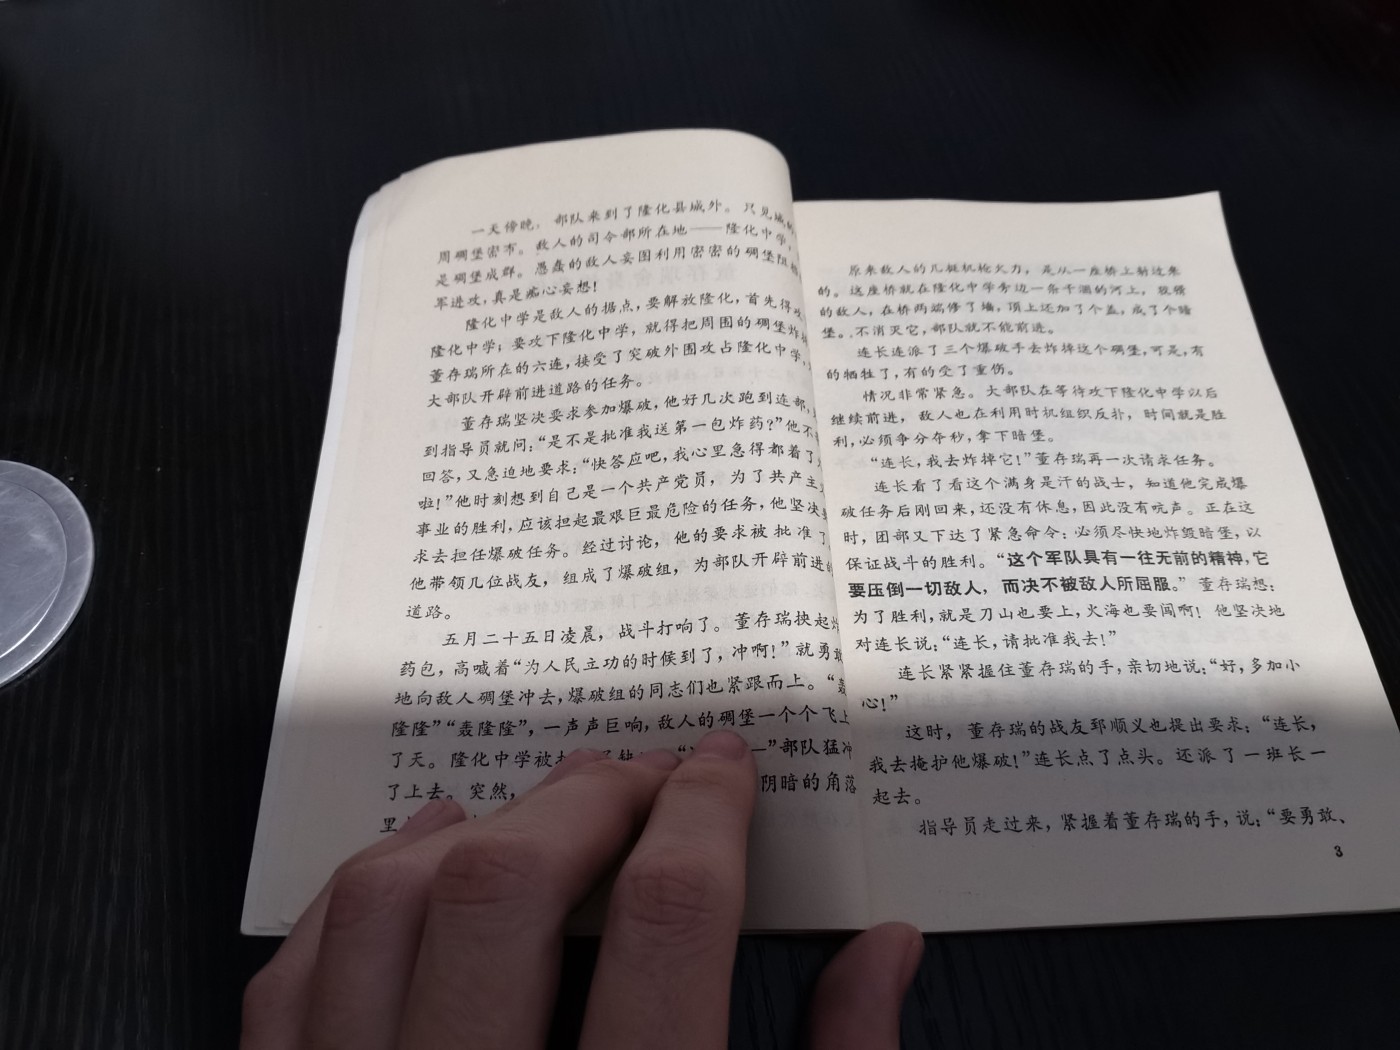 一天傍晚，部队来到了隆化县城外。只见城
周碉堡密布。敌人的司令部所在地——隆化中学，
是碉堡成群。愚蠢的敌人妄图利用密密的碉堡阻
军进攻，真是痴心妄想！
隆化中学是敌人的据点，要解放隆化，首先得攻
隆化中学；要攻下隆化中学，就得把周围的碉堡炸
董存瑞所在的六连，接受了突破外围攻占隆化中学，
大部队开辟前进道路的任务。
董存瑞坚决要求参加爆破，他好几次跑到连部，
到指导员就问：“是不是批准我送第一包炸药？”他不
回答，又急迫地要求：“快答应吧，我心里急得都着了
啦！”他时刻想到自己是一个共产党员，为了共产主
事业的胜利，应该担起最艰巨最危险的任务，他坚决
求去担任爆破任务。经过讨论，他的要求被批准了
他带领几位战友，组成了爆破组，为部队开辟前进的
道路。
五月二十五日凌晨，战斗打响了。董存瑞挟起炸
药包，高喊着“为人民立功的时候到了，冲啊！”就勇敢
地向敌人碉堡冲去，爆破组的同志们也紧跟而上。“轰
隆隆”“轰隆隆”，一声声巨响，敌人的碉堡一个个飞上
了天。隆化中学被 “ —”部队猛冲
了上去。突然， 阴暗的角落
里
原来敌人的几挺机枪火力，是从一座桥上射过来
的。这座桥就在隆化中学旁边一条干涸的河上，狡猾
的敌人，在桥两端修了墙，顶上还加了个盖，成了个暗
堡。不消灭它，部队就不能前进。
连长连派了三个爆破手去炸掉这个碉堡，可是，有
的牺牲了，有的受了重伤。
情况非常紧急。大部队在等待攻下隆化中学以后
继续前进，敌人也在利用时机组织反扑，时间就是胜
利，必须争分夺秒，拿下暗堡。
“连长，我去炸掉它！”董存瑞再一次请求任务。
连长看了看这个满身是汗的战士，知道他完成爆
破任务后刚回来，还没有休息，因此没有吭声。正在这
时，团部又下达了紧急命令：必须尽快地炸毁暗堡，以
保证战斗的胜利。“这个军队具有一往无前的精神，它
要压倒一切敌人，而决不被敌人所屈服。”董存瑞想：
为了胜利，就是刀山也要上，火海也要闯啊！他坚决地
对连长说：“连长，请批准我去！”
连长紧紧握住董存瑞的手，亲切地说：“好，多加小
心！”
这时，董存瑞的战友郅顺义也提出要求：“连长，
我去掩护他爆破！”连长点了点头。还派了一班长一
起去。
指导员走过来，紧握着董存瑞的手，说：“要勇敢、
3